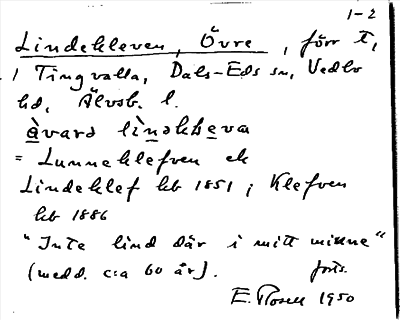 1-2
Lindekleven, Övre, förr t,
1 Tingvalla, Dals-Eds sn, Vedbo
hd, Älvsb. l.
àvarə lìnəkleva
= Lunneklefven ek
Lindeklef hb 1851; Klefven
hb 1886
"Inte lind där i mitt minne"
(medd. c:a 60 år). forts.
E. Rosell 1950